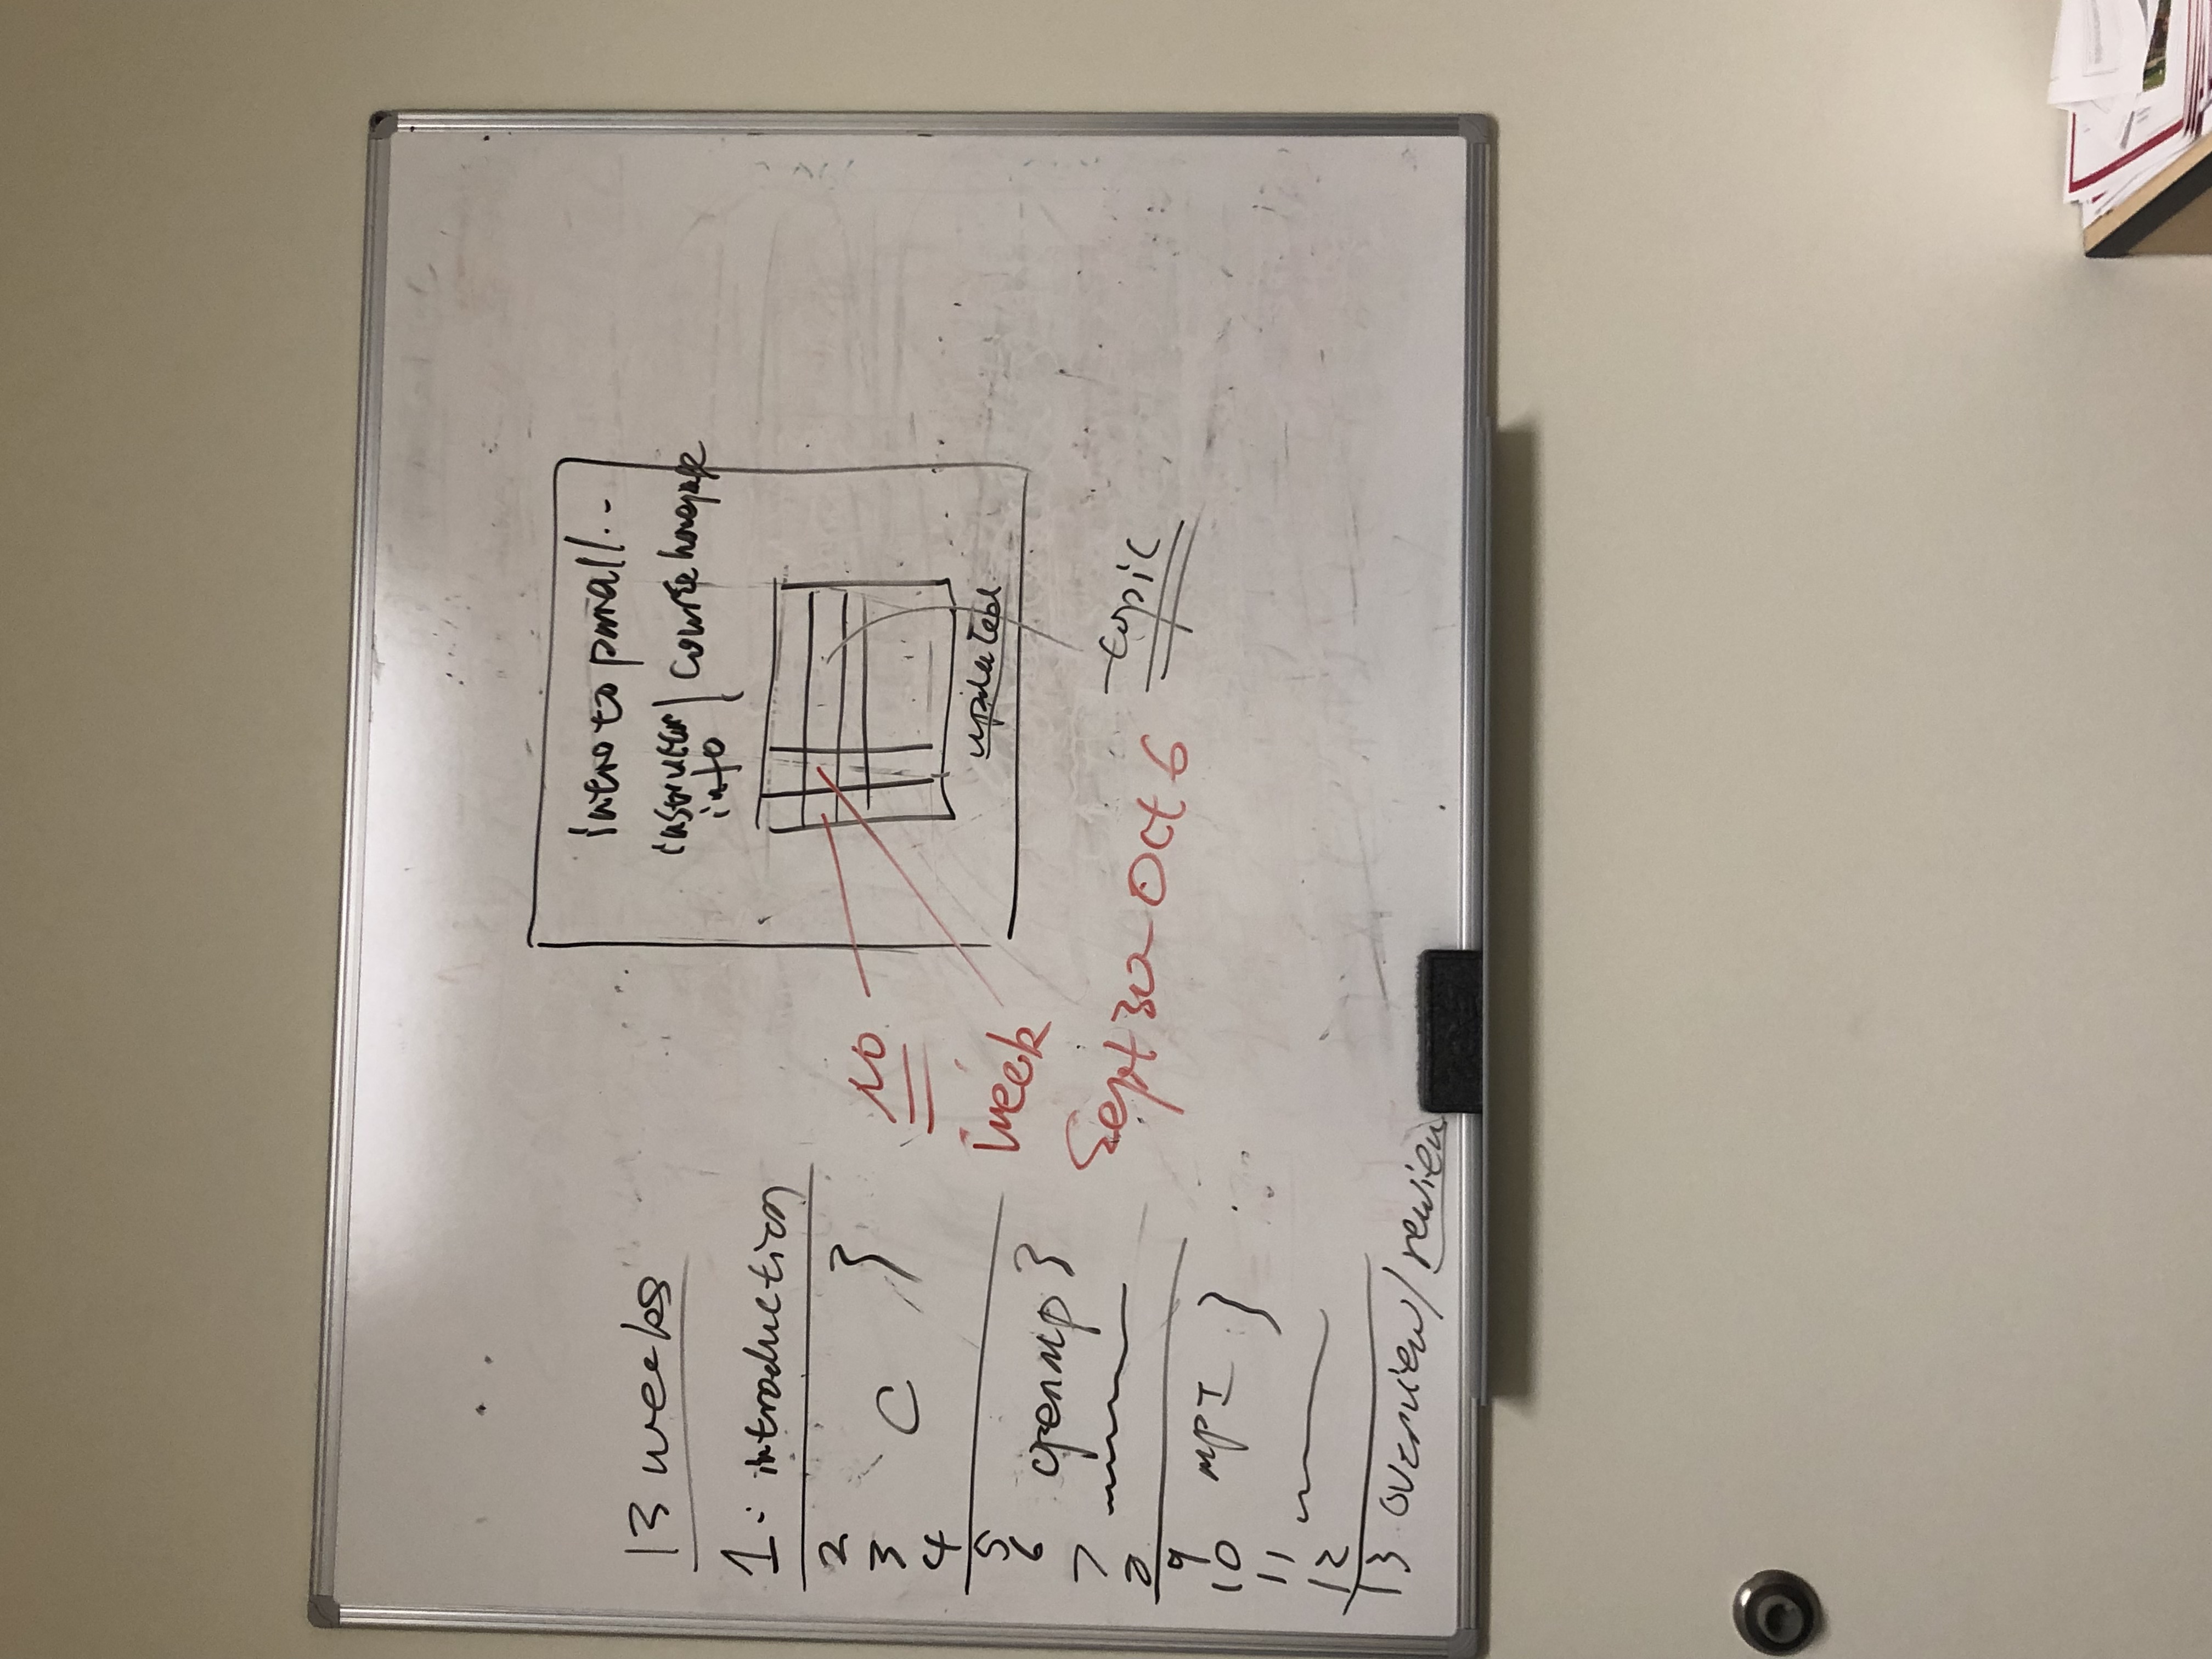 13 weeks
1: introduction
2
3 C
4
5
6 openmp
7
8
9
10 MPI
11
12
13 overview/review
intro to parall..
instructor info | course homepage
updated
NO.
week
Sept 30 - Oct 6
topic